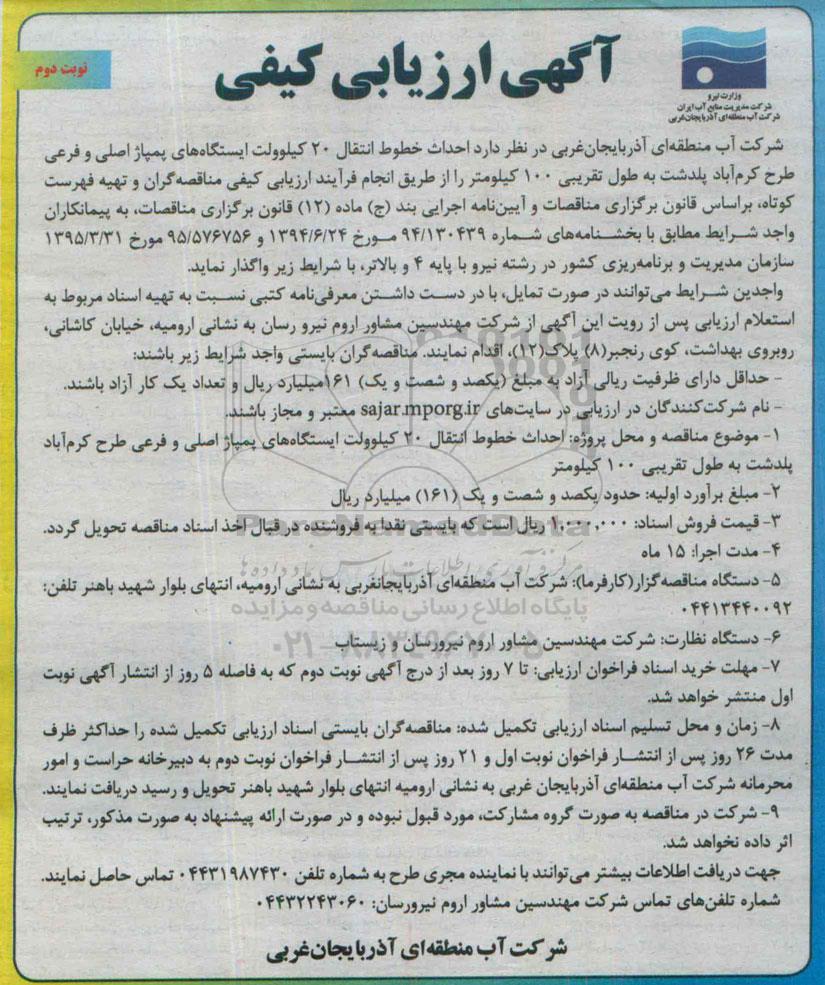 آگهی ارزیابی کیفی
نوبت دوم
وزارت نیرو
شرکت مدیریت منابع آب ایران
شرکت آب منطقه‌ای آذربایجان‌غربی
شرکت آب منطقه‌ای آذربایجان‌غربی در نظر دارد احداث خطوط انتقال ۲۰ کیلوولت ایستگاه‌های پمپاژ اصلی و فرعی
طرح کرم‌آباد پلدشت به طول تقریبی ۱۰۰ کیلومتر را از طریق انجام فرآیند ارزیابی کیفی مناقصه‌گران و تهیه فهرست
کوتاه، براساس قانون برگزاری مناقصات و آیین‌نامه اجرایی بند (ج) ماده (۱۲) قانون برگزاری مناقصات، به پیمانکاران
واجد شرایط مطابق با بخشنامه‌های شماره ۹۴/۱۳۰۴۳۹ مورخ ۱۳۹۴/۶/۲۴ و ۹۵/۵۷۶۷۵۶ مورخ ۱۳۹۵/۳/۳۱
سازمان مدیریت و برنامه‌ریزی کشور در رشته نیرو با پایه ۴ و بالاتر، با شرایط زیر واگذار نماید.
واجدین شرایط می‌توانند در صورت تمایل، با در دست داشتن معرفی‌نامه کتبی نسبت به تهیه اسناد مربوط به
استعلام ارزیابی پس از رویت این آگهی از شرکت مهندسین مشاور اروم نیرو رسان به نشانی ارومیه، خیابان کاشانی،
روبروی بهداشت، کوی رنجبر(۸) پلاک(۱۲)، اقدام نمایند. مناقصه‌گران بایستی واجد شرایط زیر باشند:
- حداقل دارای ظرفیت ریالی آزاد به مبلغ (یکصد و شصت و یک) ۱۶۱میلیارد ریال و تعداد یک کار آزاد باشند.
- نام شرکت‌کنندگان در ارزیابی در سایت‌های sajar.mporg.ir معتبر و مجاز باشند.
۱- موضوع مناقصه و محل پروژه: احداث خطوط انتقال ۲۰ کیلوولت ایستگاه‌های پمپاژ اصلی و فرعی طرح کرم‌آباد
پلدشت به طول تقریبی ۱۰۰ کیلومتر
۲- مبلغ برآورد اولیه: حدود یکصد و شصت و یک (۱۶۱) میلیارد ریال
۳- قیمت فروش اسناد: ۱,۰۰۰,۰۰۰ ریال است که بایستی نقدا به فروشنده در قبال اخذ اسناد مناقصه تحویل گردد.
۴- مدت اجرا: ۱۵ ماه
۵- دستگاه مناقصه‌گزار(کارفرما): شرکت آب منطقه‌ای آذربایجانغربی به نشانی ارومیه، انتهای بلوار شهید باهنر تلفن:
۰۴۴۱۳۴۴۰۰۹۲
۶- دستگاه نظارت: شرکت مهندسین مشاور اروم نیرورسان و زیستاب
۷- مهلت خرید اسناد فراخوان ارزیابی: تا ۷ روز بعد از درج آگهی نوبت دوم که به فاصله ۵ روز از انتشار آگهی نوبت
اول منتشر خواهد شد.
۸- زمان و محل تسلیم اسناد ارزیابی تکمیل شده: مناقصه‌گران بایستی اسناد ارزیابی تکمیل شده را حداکثر ظرف
مدت ۲۶ روز پس از انتشار فراخوان نوبت اول و ۲۱ روز پس از انتشار فراخوان نوبت دوم به دبیرخانه حراست و امور
محرمانه شرکت آب منطقه‌ای آذربایجان غربی به نشانی ارومیه انتهای بلوار شهید باهنر تحویل و رسید دریافت نمایند.
۹- شرکت در مناقصه به صورت گروه مشارکت، مورد قبول نبوده و در صورت ارائه پیشنهاد به صورت مذکور، ترتیب
اثر داده نخواهد شد.
جهت دریافت اطلاعات بیشتر می‌توانند با نماینده مجری طرح به شماره تلفن ۰۴۴۳۱۹۸۷۴۳۰ تماس حاصل نمایند.
شماره تلفن‌های تماس شرکت مهندسین مشاور اروم نیرورسان: ۰۴۴۳۲۲۴۳۰۶۰
شرکت آب منطقه‌ای آذربایجان‌غربی
ParsNamadData
مرکز فرآوری اطلاعات پارس نماد داده‌ها
پایگاه اطلاع رسانی مناقصه و مزایده